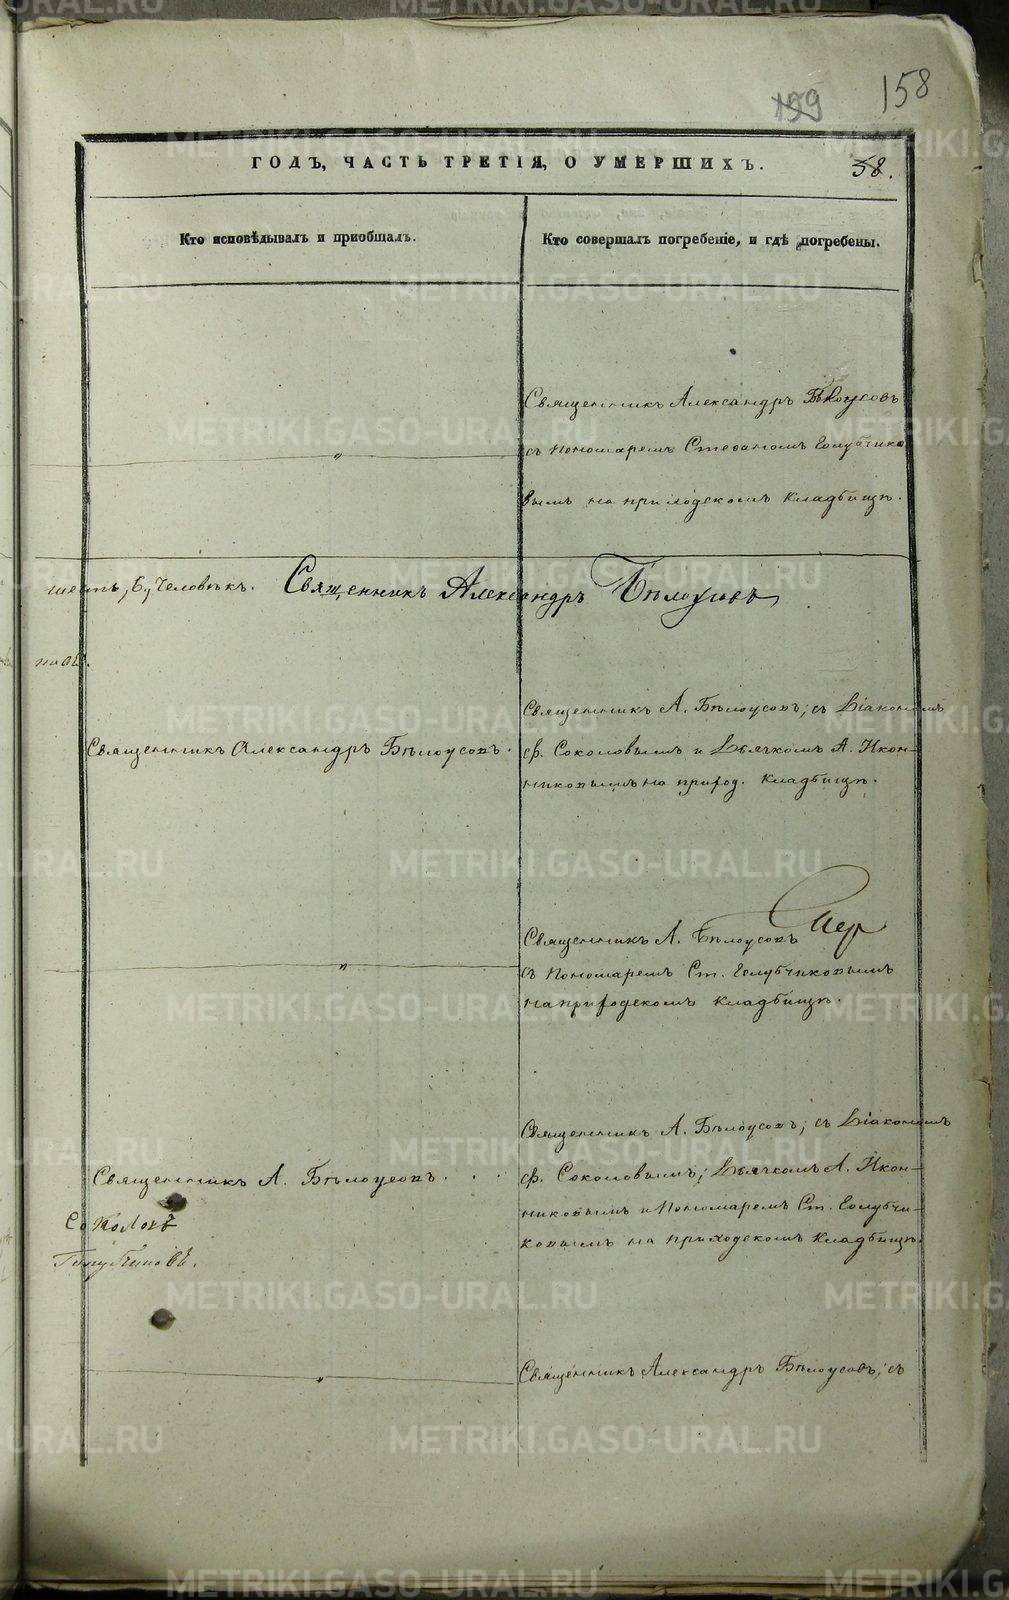 158
199
ГОДЪ, ЧАСТЬ ТРЕТІЯ, О УМЕРШИХЪ.
58.
Кто исповѣдывалъ и пріобщалъ.
Кто совершалъ погребеніе, и гдѣ погребены.
Священникъ Александръ Бѣлоусовъ
съ пономаремъ Стефаномъ Голубчико
вымъ на приходскомъ кладбищѣ.
"
шесть, 6, человѣкъ. Священникъ Александръ Бѣлоусовъ
Священникъ Александръ Бѣлоусовъ.
Священникъ А. Бѣлоусовъ; съ Діакономъ
Ѳ. Соколовымъ и Дьячкомъ А. Икон-
никовымъ на приход. кладбищѣ.
"
Священникъ А. Бѣлоусовъ
съ Пономаремъ Ст. Голубчиковымъ
на приходскомъ кладбищѣ.
Священникъ А. Бѣлоусовъ.
Соколовъ
Голубчиковъ.
Священникъ А. Бѣлоусовъ; съ Діакономъ
Ѳ. Соколовымъ; Дьячкомъ А. Икон-
никовымъ и Пономаремъ Ст. Голубчи-
ковымъ на приходскомъ кладбищѣ.
"
Священникъ Александръ Бѣлоусовъ; съ
METRIKI.GASO-URAL.RU